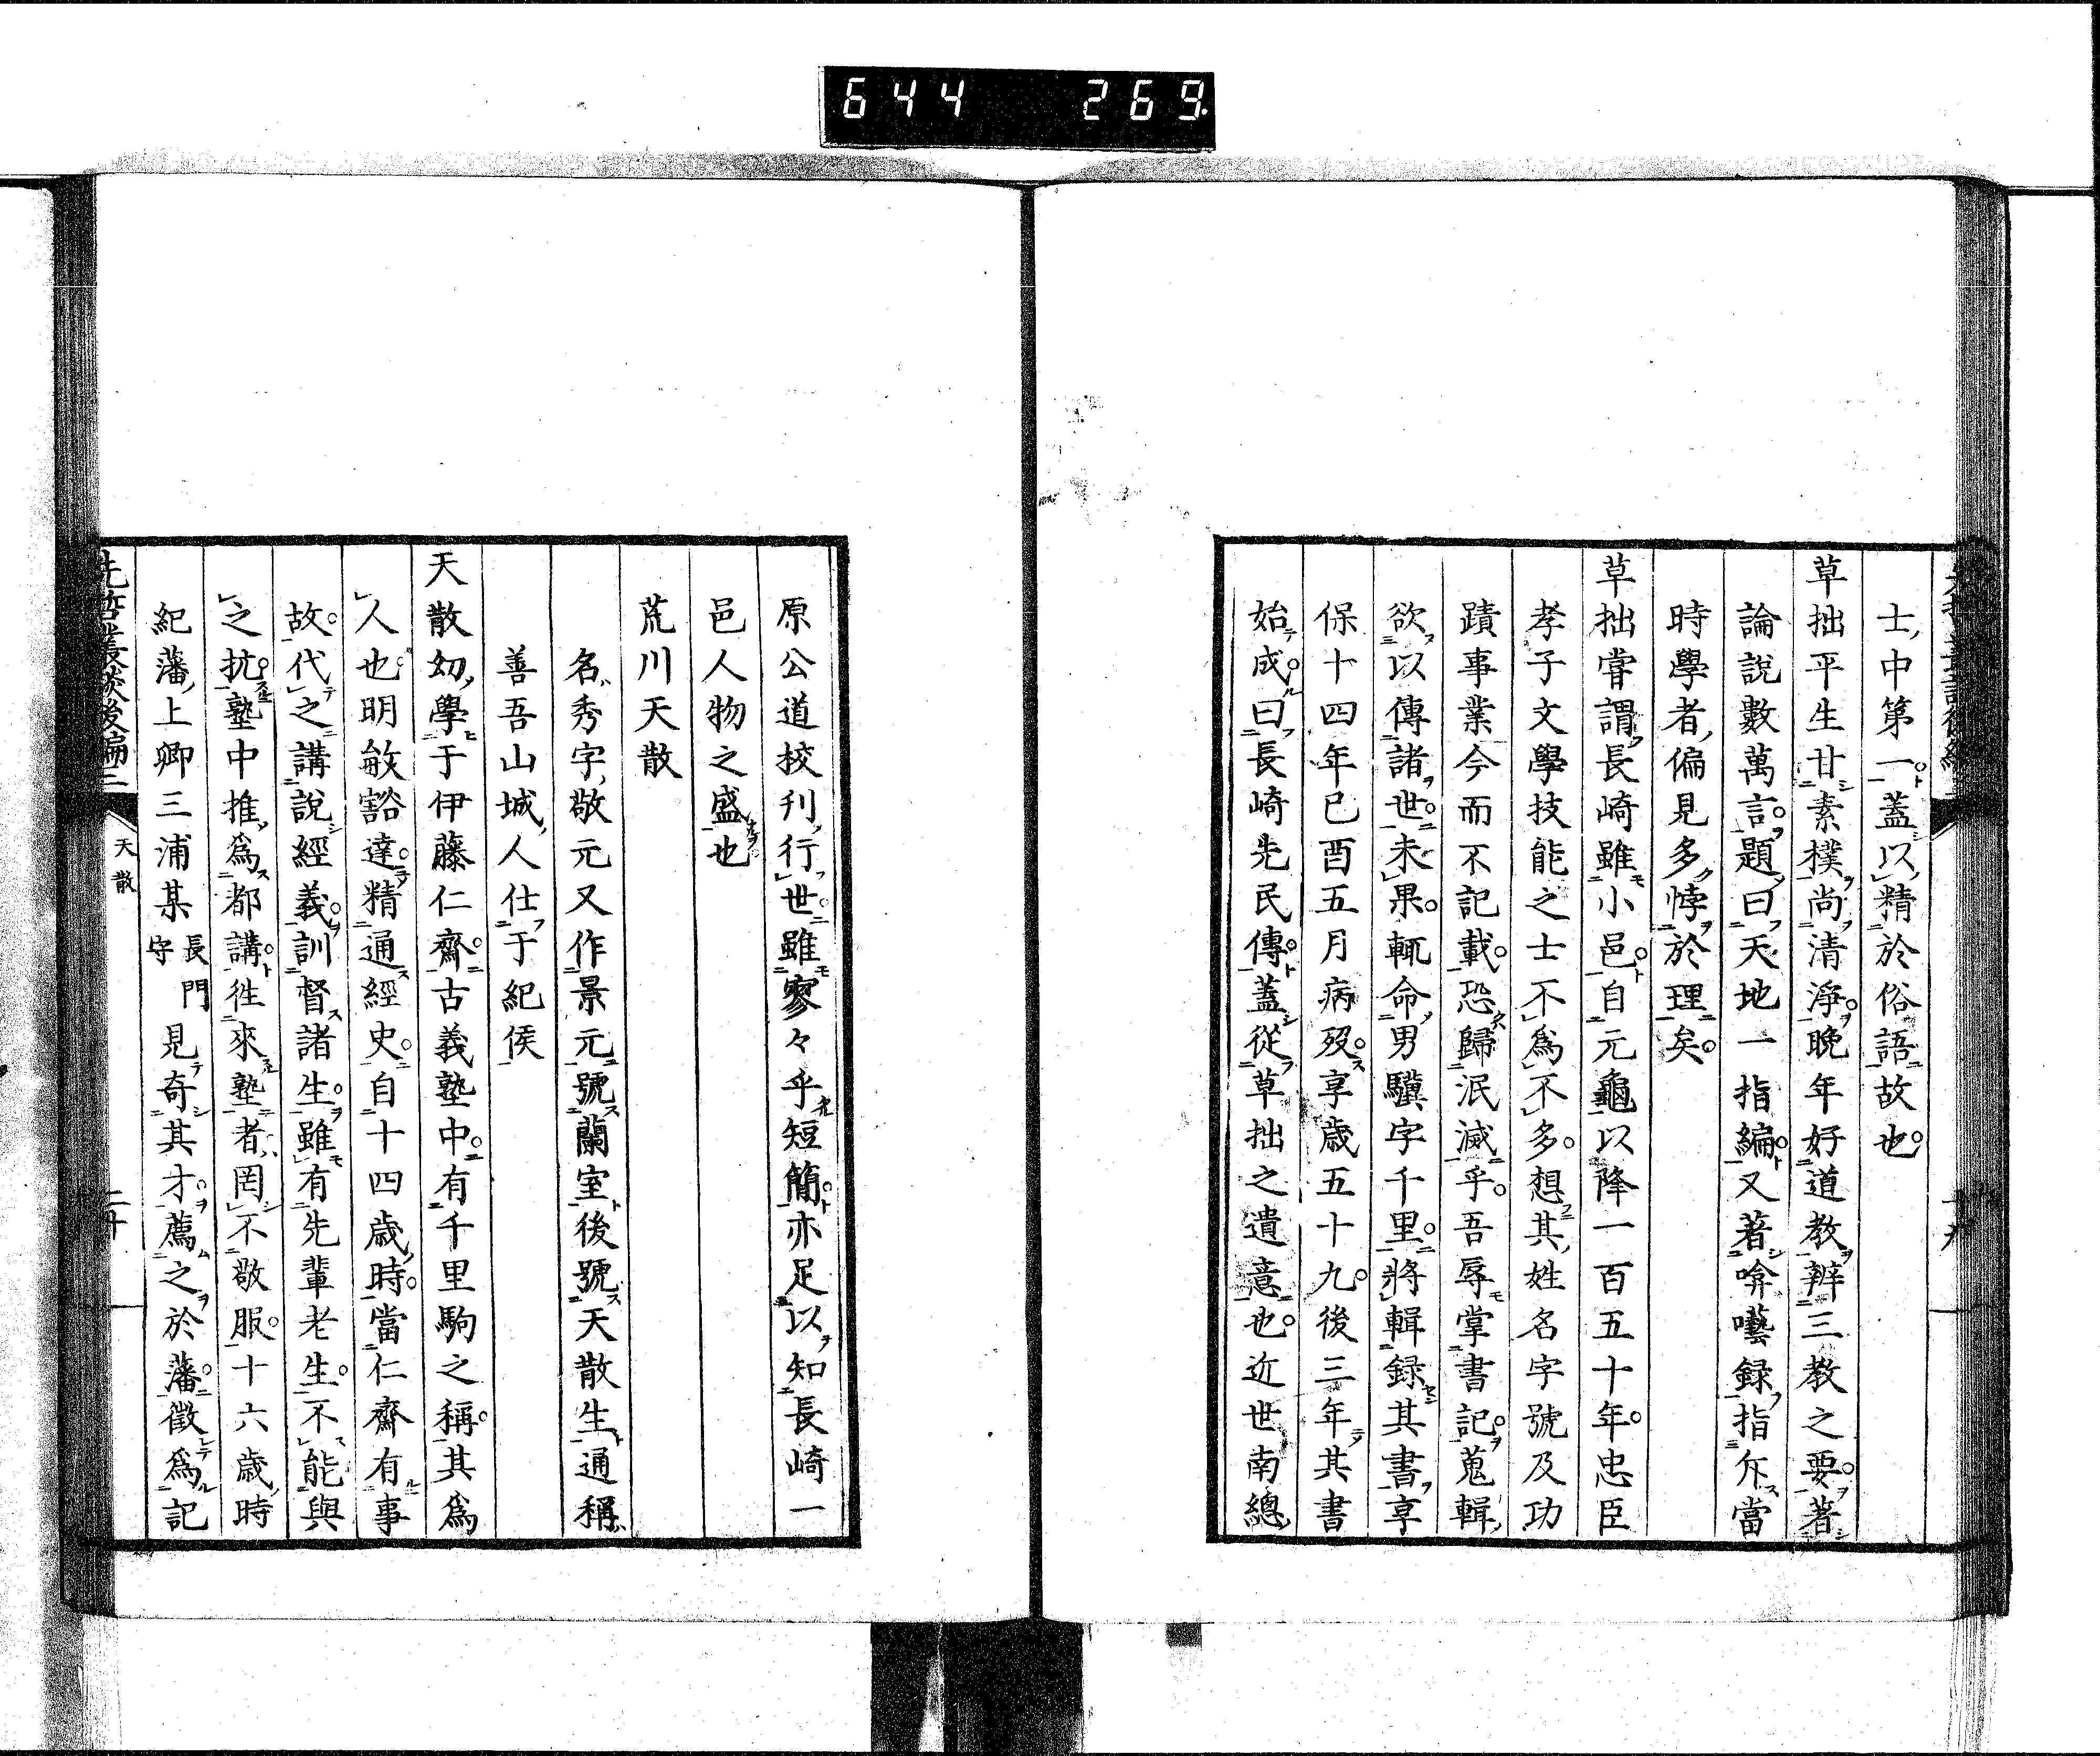 644 269
士中第一蓋以精於俗語故也
草拙平生廿素樸尚清淨晚年好道教辨三教之要著
論說數萬言題曰天地一指編又著唹囈録指斥當
時學者偏見多悖於理矣
草拙甞謂長崎雖小邑自元龜以降一百五十年忠臣
孝子文學技能之士不爲不多想其姓名字號及功
蹟事業今而不記載恐歸泯滅乎吾辱掌書記蒐輯
欲以傳諸世未果輒命男驥字千里將輯録其書享
保十四年己酉五月病歿享歳五十九後三年其書
始成曰長崎先民傳蓋從草拙之遺意也近世南總
原公道挍刋行世雖寥々乎短簡亦足以知長崎一
邑人物之盛也
荒川天散
名秀字敬元又作景元號蘭室後號天散生通稱
善吾山城人仕于紀侯
天散幼學于伊藤仁齋古義塾中有千里駒之稱其爲
人也明敏豁達精通經史自十四歳時當仁齋有事
故代之講說經義訓督諸生雖有先輩老生不能與
之抗塾中推爲都講徃來塾者罔不敬服十六歳時
紀藩上卿三浦某長門守見奇其才薦之於藩徵爲記
先哲叢談後編二
天散
二十